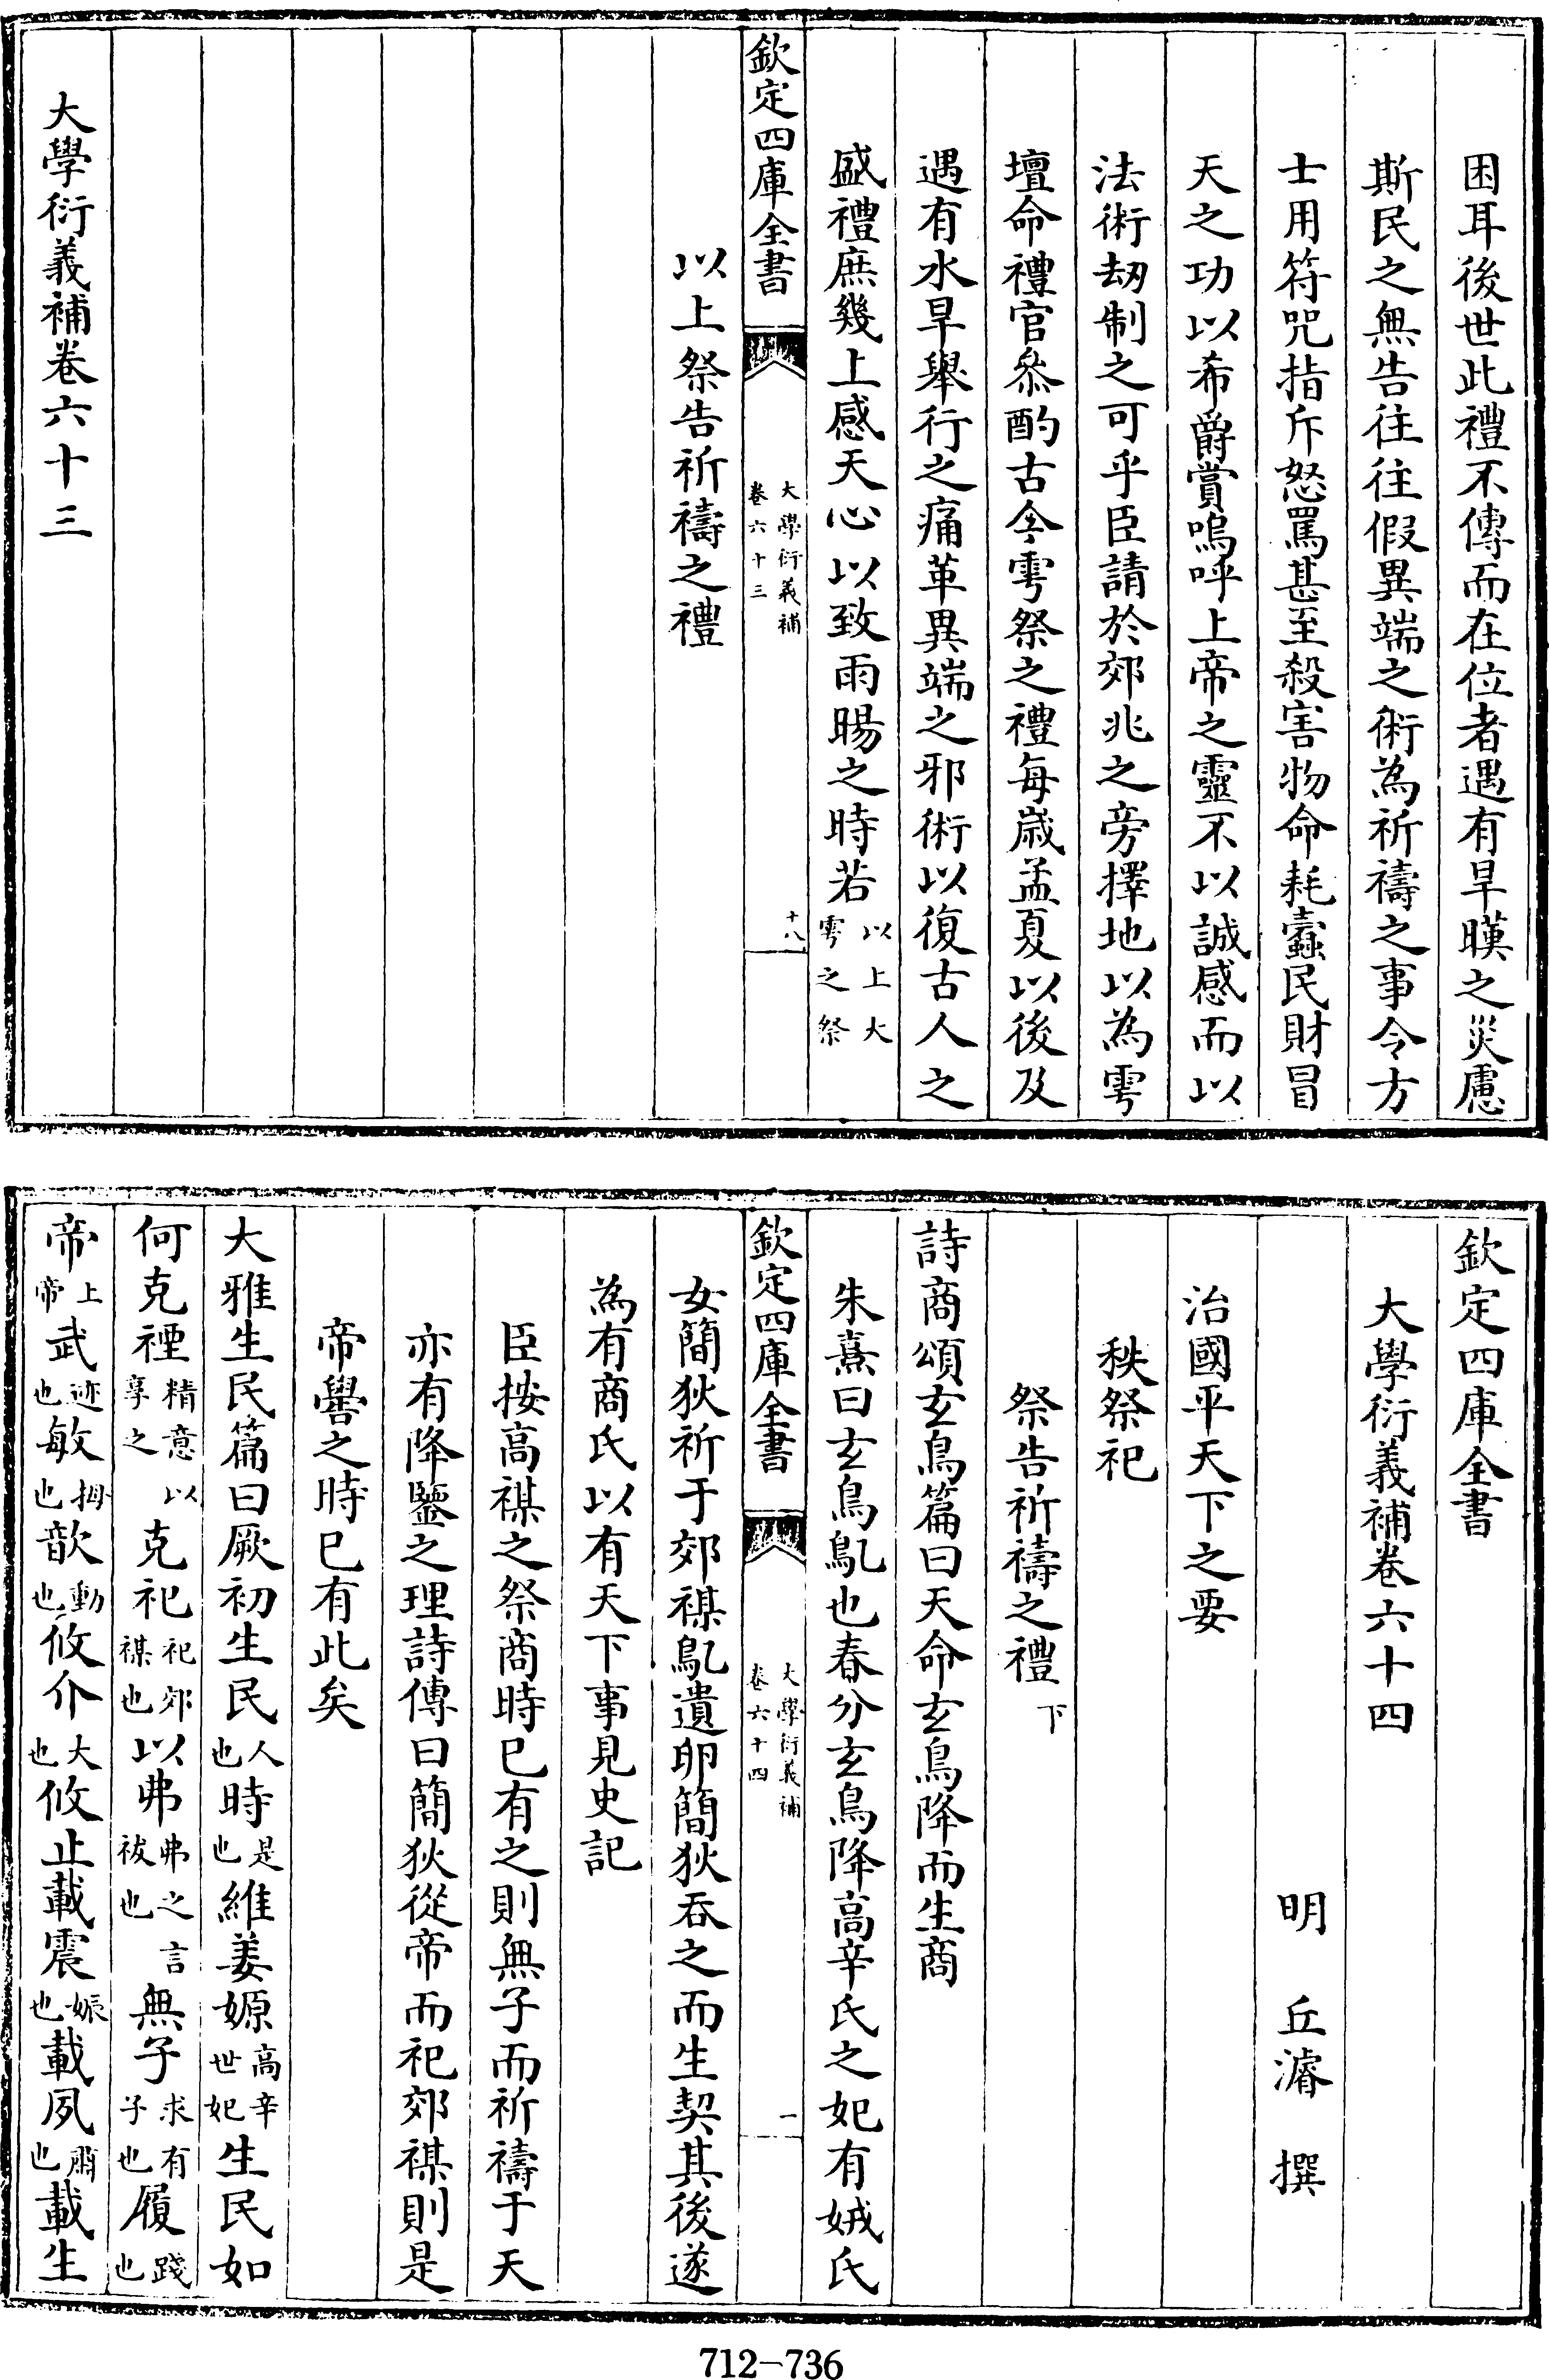 困耳後世此禮不傳而在位者遇有旱暵之災慮
斯民之無告往往假異端之術為祈禱之事令方
士用符咒指斥怒罵甚至殺害物命耗蠧民財冒
天之功以希爵賞嗚呼上帝之靈不以誠感而以
法術刼制之可乎臣請於郊兆之旁擇地以為雩
壇命禮官叅酌古今雩祭之禮每嵗孟夏以後及
遇有水旱舉行之痛革異端之邪術以復古人之
盛禮庶幾上感天心以致雨暘之時若以上大雩之祭
欽定四庫全書 大學衍義補卷六十三 十八
以上祭告祈禱之禮
大學衍義補卷六十三
欽定四庫全書
大學衍義補卷六十四
明 丘濬 撰
治國平天下之要
秩祭祀
祭告祈禱之禮下
詩商頌玄鳥篇曰天命玄鳥降而生商
朱熹曰玄鳥鳦也春分玄鳥降高辛氏之妃有娀氏
欽定四庫全書 大學衍義補卷六十四 一
女簡狄祈于郊禖鳦遺卵簡狄吞之而生契其後遂
為有商氏以有天下事見史記
臣按高禖之祭商時已有之則無子而祈禱于天
亦有降鑒之理詩傳曰簡狄從帝而祀郊禖則是
帝嚳之時已有此矣
大雅生民篇曰厥初生民人也時是也維姜嫄高辛世妃生民如
何克禋精意以享之克祀祀郊禖也以弗弗之言祓也無子求有子也履踐也
帝上帝武迹也敏拇也歆動也攸介大也攸止載震娠也載夙肅也載生
712-736